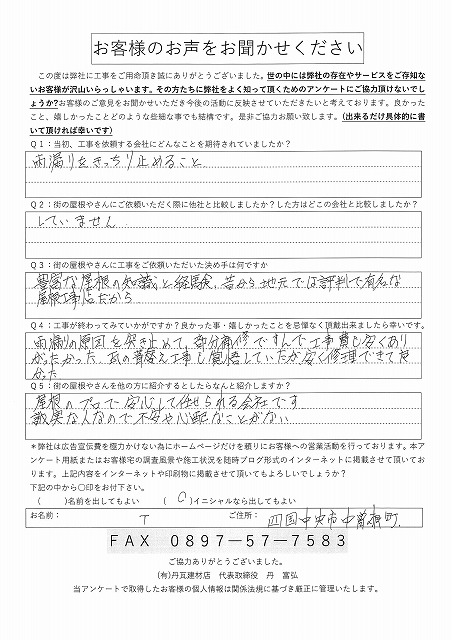 お客様のお声をお聞かせください
この度は弊社に工事をご用命頂き誠にありがとうございました。世の中には弊社の存在やサービスをご存知な
いお客様が沢山いらっしゃいます。その方たちに弊社をよく知って頂くためのアンケートにご協力頂けないでし
ょうか?お客様のご意見をお聞かせいただき今後の活動に反映させていただきたいと考えております。良かった
こと、嬉しかったことどのような些細な事でも結構です。是非ご協力お願い致します。(出来るだけ具体的に書
いて頂ければ幸いです)
Q1:当初、工事を依頼する会社にどんなことを期待されていましたか?
雨漏りをきっちり止めること
Q2:街の屋根やさんにご依頼いただく際に他社と比較しましたか?した方はどこの会社と比較しましたか?
していません
Q3:街の屋根やさんに工事をご依頼いただいた決め手は何ですか
豊富な屋根の知識と経験、昔から地元では評判で有名な
屋根工事店だから
Q4:工事が終わってみていかがですか?良かった事・嬉しかったことを忌憚なく頂戴出来ましたら幸いです。
雨漏りの原因を突き止めて、部分補修ですんで工事費も安くあり
がたかった、瓦の葺替え工事も覚悟していたが安く修理できて良
かった
Q5:街の屋根やさんを他の方に紹介するとしたらなんと紹介しますか?
屋根のプロで安心して任せられる会社です
誠実な人なので不安や心配なことがない
*弊社は広告宣伝費を極力かけない為にホームページだけを頼りにお客様への営業活動を行っております。本ア
ンケート用紙またはお客様宅の調査風景や施工状況を随時ブログ形式のインターネットに掲載させて頂いてお
ります。上記内容をインターネットや印刷物に掲載させて頂いてもよろしいでしょうか?
下記の中から〇印をお付下さい。
( )名前を出してもよい (〇)イニシャルなら出してもよい
お名前: T ご住所: 四国中央市中曽根町
FAX 0897-57-7583
ご協力ありがとうございました。
(有)丹瓦建材店 代表取締役 丹 富弘
当アンケートで取得したお客様の個人情報は関係法規に基づき厳正に管理いたします。